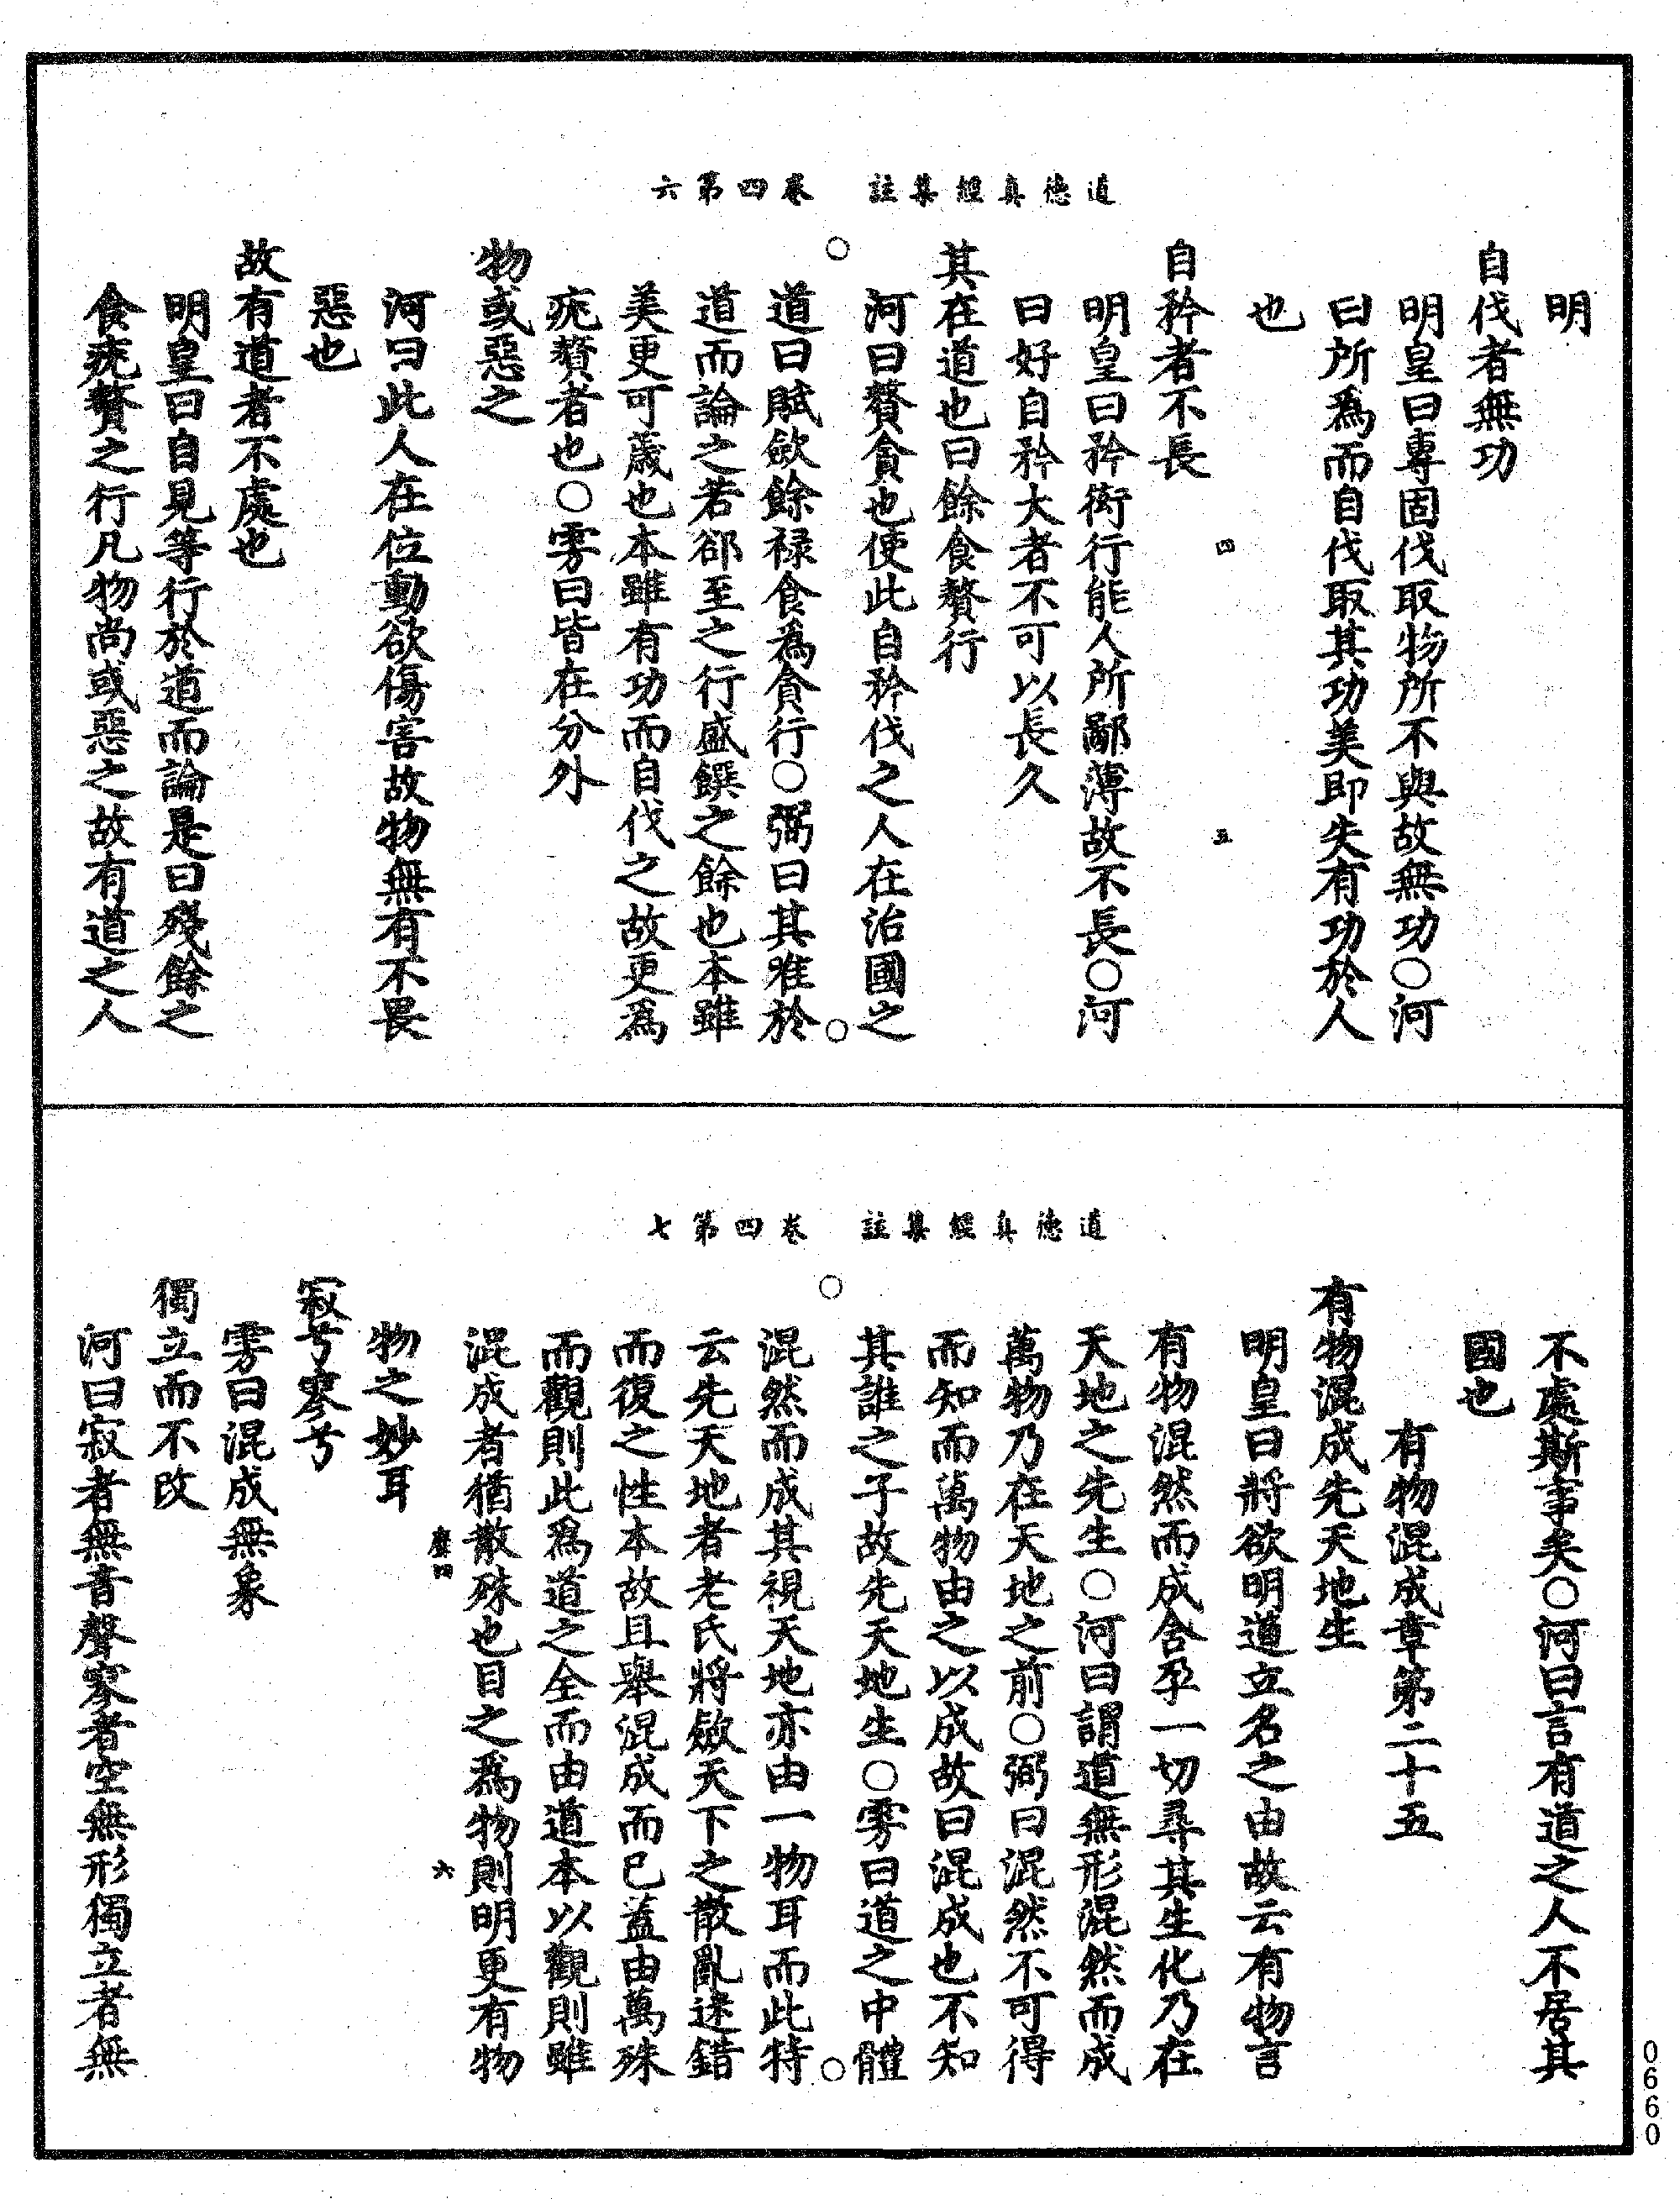 道德真經集註　卷四第六
明
自伐者無功
明皇曰專固伐取物所不與故無功○河
曰所爲而自伐取其功美即失有功於人
也
四
五
自矜者不長
明皇曰矜衒行能人所鄙薄故不長○河
曰好自矜大者不可以長久
其在道也曰餘食贅行
河曰贅貪也使此自矜伐之人在治國之
道曰賦斂餘禄食爲貪行○弼曰其唯於
道而論之若郤至之行盛饌之餘也本雖
美更可薉也本雖有功而自伐之故更爲
疣贅者也○雱曰皆在分外
物或惡之
河曰此人在位動欲傷害故物無有不畏
惡也
故有道者不處也
明皇曰自見等行於道而論是曰殘餘之
食疣贅之行凡物尚或惡之故有道之人
道德真經集註　卷四第七
不處斯事矣○河曰言有道之人不居其
國也
有物混成章第二十五
有物混成先天地生
明皇曰將欲明道立名之由故云有物言
有物混然而成含孕一切尋其生化乃在
天地之先生○河曰謂道無形混然而成
萬物乃在天地之前○弼曰混然不可得
而知而萬物由之以成故曰混成也不知
其誰之子故先天地生○雱曰道之中體
混然而成其視天地亦由一物耳而此特
云先天地者老氏將斂天下之散亂迷錯
而復之性本故且舉混成而已蓋由萬殊
而觀則此爲道之全而由道本以觀則雖
混成者猶散殊也目之爲物則明更有物
六
物之妙耳
寂兮寥兮
雱曰混成無象
獨立而不改
河曰寂者無音聲寥者空無形獨立者無
0660